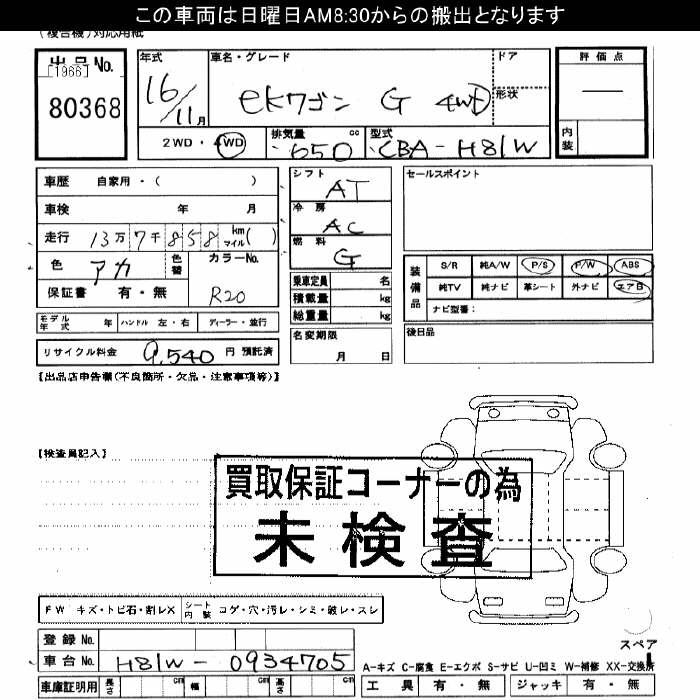 この車両は日曜日AM8:30からの搬出となります
(複合機)対応用紙
出品No.
[1966]
80368
年式
16/11月
車名・グレード
eKワゴン G 4WD
ドア
形状
評価点
内装
2WD・4WD
排気量 cc
650
型式
CBA-H81W
車歴 自家用・( )
車検 年 月
走行 13万7千858 km マイル( )
色 アカ
色替
カラーNo.
R20
保証書 有・無
シフト
AT
冷房
AC
燃料
G
乗車定員 名
積載量 kg
総重量 kg
名変期限
月 日
セールスポイント
装備品
S/R 純A/W P/S P/W ABS
純TV 純ナビ 革シート 外ナビ エアB
ナビ型番:
後日品
モデル年式 年 ハンドル 左・右 ディーラー・並行
リサイクル料金 9,540 円 預託済
【出品店申告欄(不良箇所・欠品・注意事項等)】
【検査員記入】
買取保証コーナーの為
未検査
FW キズ・トビ石・割レX
シート内装 コゲ・穴・汚レ・シミ・破レ・スレ
登録No.
車台No. H81W-0934705
車庫証明用 長さ cm 幅 cm 高さ cm
スペア
A-キズ C-腐食 E-エクボ S-サビ U-凹ミ W-補修 XX-交換済
工具 有・無 ジャッキ 有・無